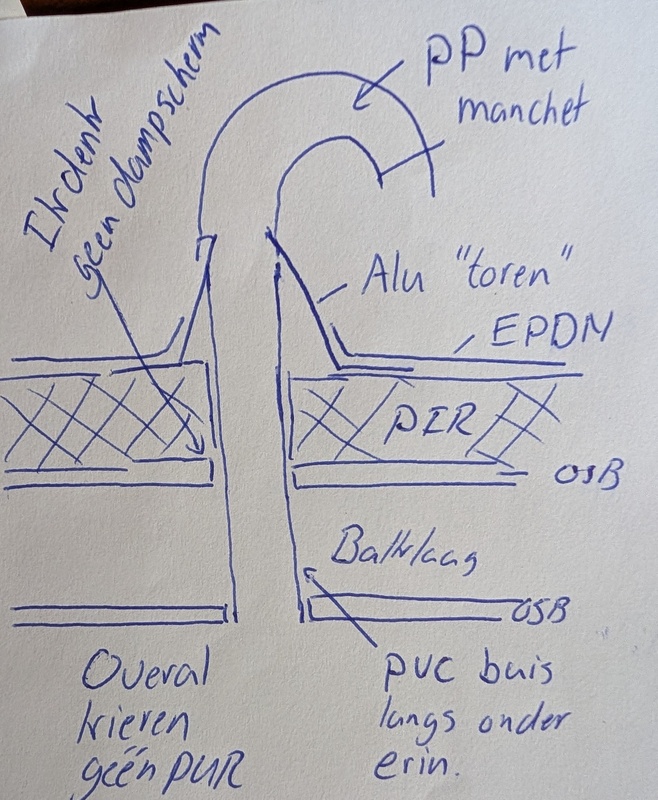 Ik denk
geen dampscherm
PP met
manchet
Alu "toren"
EPDM
PIR
OSB
Balklaag
OSB
Overal
kieren
geën PUR
PVC buis
langs onder
erin.